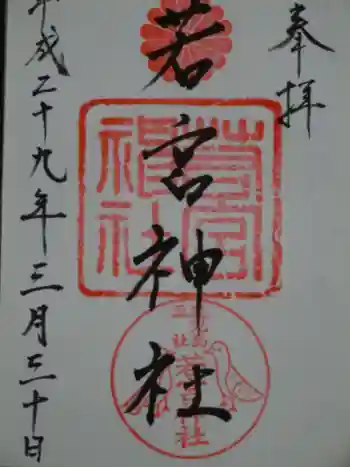 奉拝
若宮神社
平成二十九年三月三十日
若宮
神社